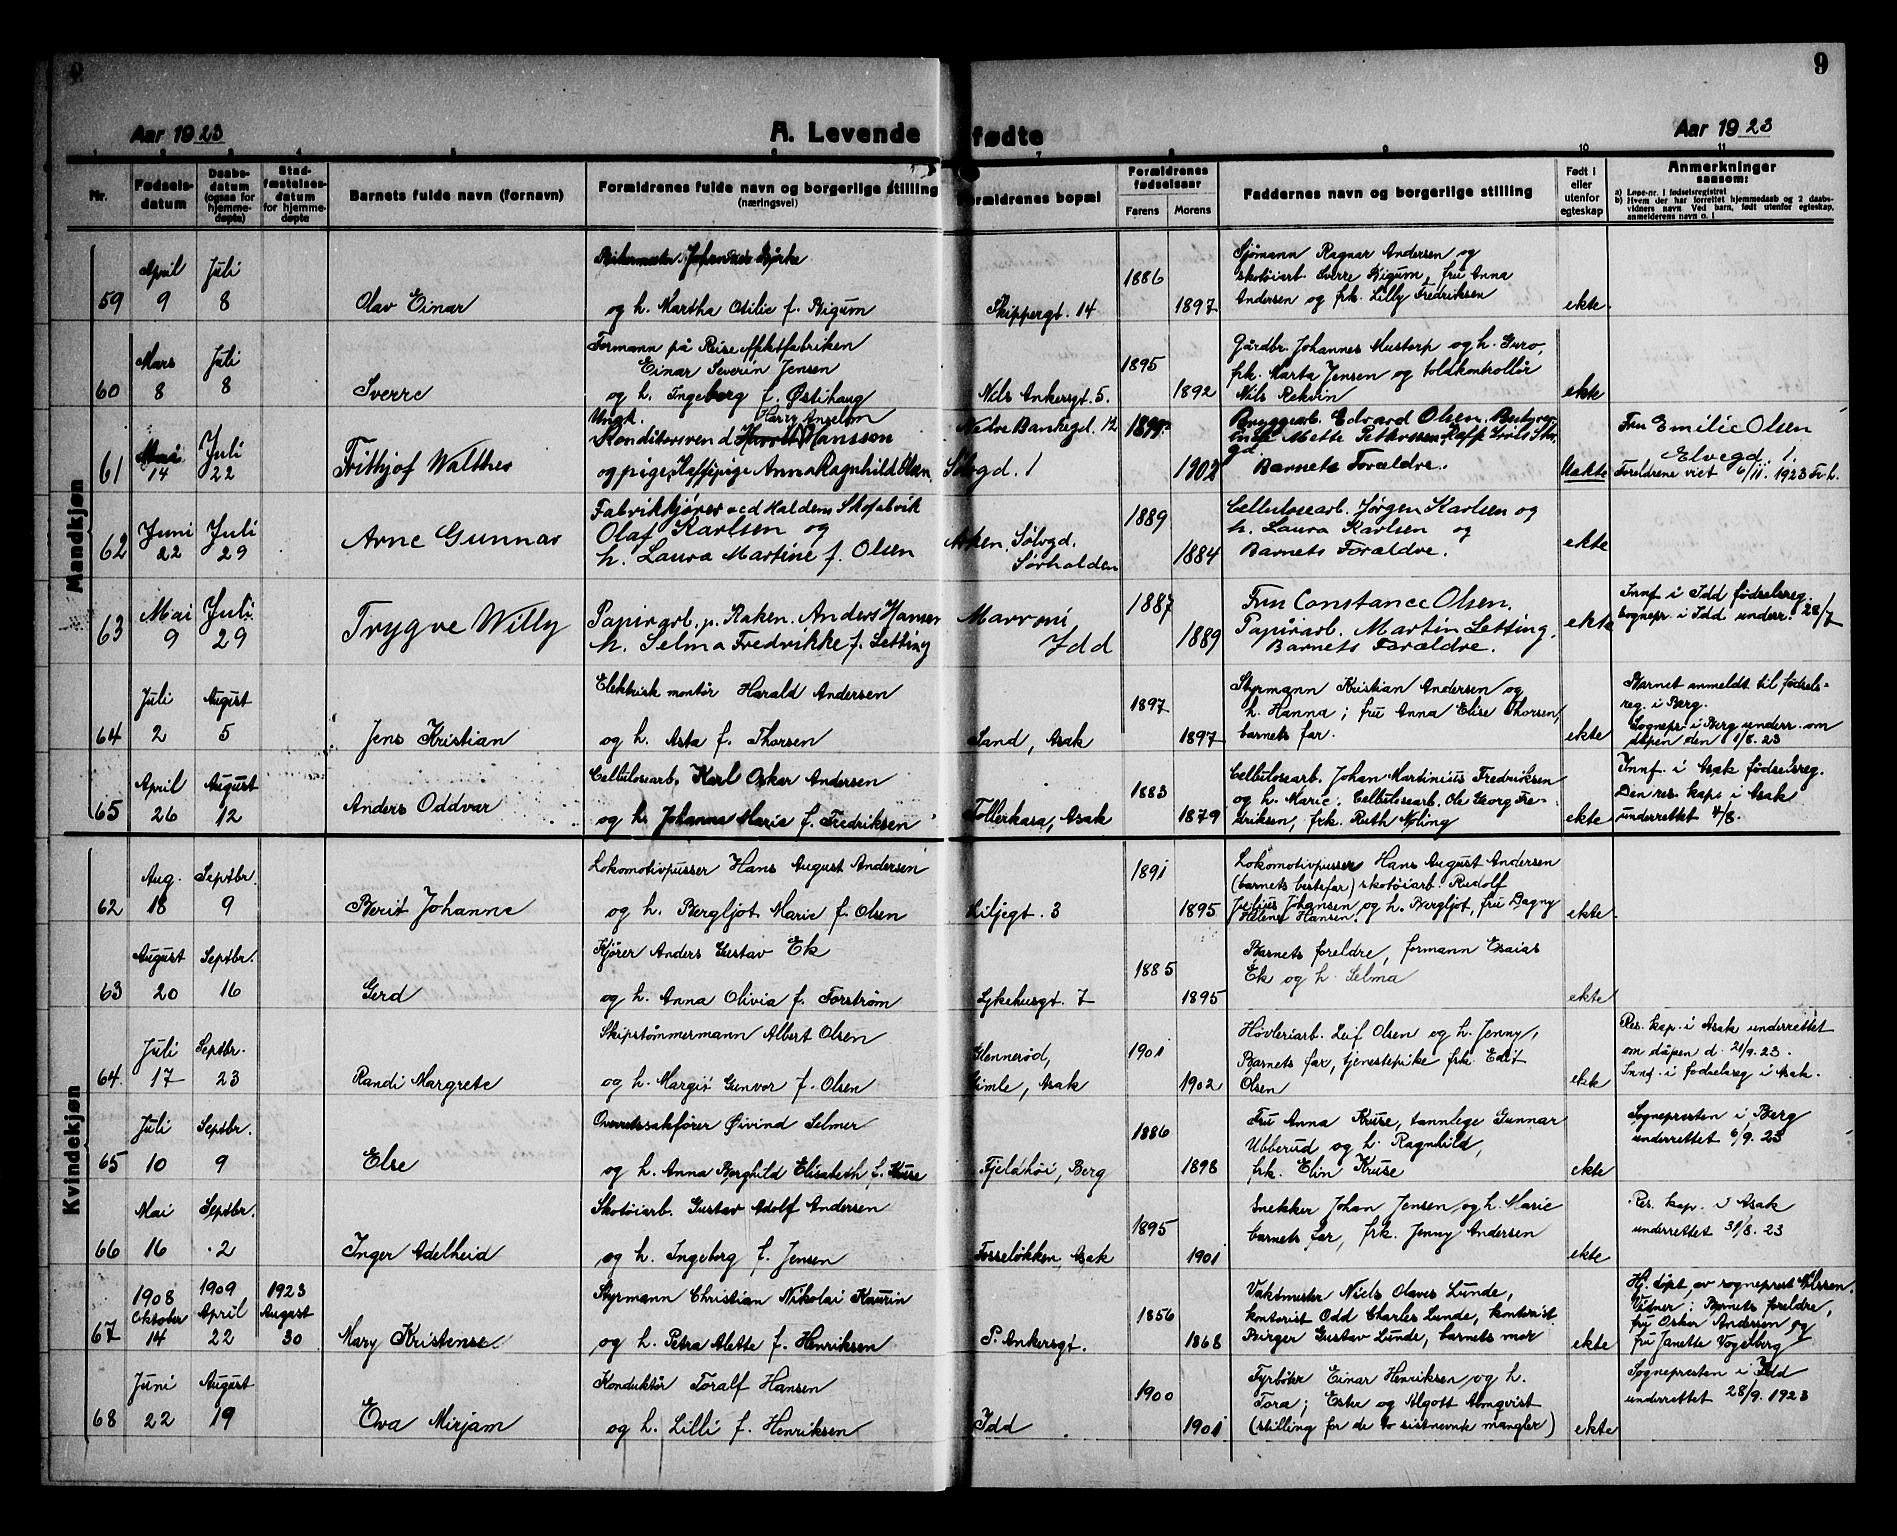 9
Aar 1923
A. Levende fødte
Aar 1923
Nr.
Fødsels-
datum
Daabs-
datum
(ogsaa for
hjemme-
døpte)
Stad-
fæstelses-
datum
for hjemme-
døpte
Barnets fulde navn (fornavn)
Forældrenes fulde navn og borgerlige stilling
(næringsvei)
Forældrenes bopæl
Forældrenes
fødselsaar
Farens
Morens
Faddernes navn og borgerlige stilling
Født i
eller
utenfor
egteskap
Anmerkninger
sansom:
a) Løpe-nr. i fødselsregistret
b) Hvem der har forrettet hjemmedaab og 2 daabs-
vidners navn. Ved barn, født utenfor egteskap,
anmelderens navn o. l.
Mandkjøn
59
April
9
Juli
8
Olav Einar
Johannes Bjørke
og h. Martha Otilie f. Bigum
Skippergt. 14
1886
1897
Sjømann Ragnar Andersen og
skotøiarb. Sverre Bigum, fru Anna
Andersen og frk. Lilly Fredriksen
ekte
60
Mars
8
Juli
8
Sverre
Formann på Reiseeffektfabriken
Einar Severin Jensen
og h. Ingeborg f. Østihaug
Nils Ankersgt. 5.
1895
1892
Gårdbr. Johannes Musterp og h. Guro,
frk. Marta Jensen og toldkontrollør
Nils Rekvin
ekte
61
Mai
14
Juli
22
Frithjof Walther
Ungk. Harry Anselm
Konditorsvend Hansson
og pige, Kaffipige Anna Ragnhild Olsen
Nedre Bankegd. 12
Sølvgd. 1
1899
1902
Bryggearb. Edvard Olsen, Bestyrer
inde Mette
Barnets Forældre.
Uekte
Fru Emilie Olsen
Elvegd. 1.
Foreldrene viet 6/11. 1923 Fr. h.
62
Juni
22
Juli
29
Arne Gunnar
Fabrikkjører ved Haldens Skofabrik
Olaf Karlsen og
h. Laura Martine f. Olsen
Sølvgd.
Sørhalden
1889
1884
Cellulosearb. Jørgen Karlsen og
h. Laura Karlsen og
Barnets Forældre.
ekte
63
Mai
9
Juli
29
Trygve Willy
Papirarb. p. Saken. Anders Hansen
h. Selma Fredrikke f. Letting
Marroni
Idd
1887
1889
Fru Constance Olsen.
Papirarb. Martin Letting.
Barnets Forældre.
ekte
Innf. i Idd fødselsreg.
Sognepr. i Idd underr. 28/7
64
Juli
2
August
5
Jens Kristian
Elektrisk montør Harald Andersen
og h. Asta f. Thorsen
Sand, Asak
1897
1897
Styrmann Kristian Andersen og
h. Hanna; fru Anna Elise Thorsen,
barnets far.
ekte
Barnet anmeldt til fødsels-
reg. i Berg.
Sognepr. i Berg underr. om
dåpen den 1/8. 23
65
April
26
August
12
Anders Oddvar
Cellulosearb. Karl Oskar Andersen
og h. Johanna Marie f. Fredriksen
Tollerkasa, Asak
1883
1879
Cellulosearb. Johan Martinius Fredriksen
og h. Marie; Cellulosearb. Ole Georg Fre-
driksen, frk. Ruth Moling
ekte
Innf. i Asak fødselsreg.
Den res. kap. i Asak
underrettet 4/8.
Kvindekjøn
62
Aug.
18
Septbr.
9
Berit Johanne
Lokomotivpusser Hans August Andersen
og h. Bergljot Marie f. Olsen
Liljegt. 3
1891
1895
Lokomotivpusser Hans August Andersen
(barnets bestefar) skotøiarb. Rudolf
Julius Johansen og h. Bergljot, fru Dagny
Helene Hansen.
ekte
63
August
20
Septbr.
16
Gerd
Kjører Anders Gustav Ek
og h. Anna Olivia f. Forstrøm
Sykehusgt. 7
1885
1895
Barnets foreldre, formann Esaias
Ek og h. Selma
ekte
64
Juli
17
Septbr.
23
Randi Margrete
Skipstømmermann Albert Olsen
og h. Margit Gunvor f. Olsen
Glennerød,
Gimle, Asak
1901
1902
Høvleriarb. Leif Olsen og h. Jenny,
Barnets far, tjenestepike frk. Edit
Olsen
ekte
Res. kap. i Asak underrettet
om dåpen d. 21/9. 23.
Innf. i fødselsreg i Asak.
65
Juli
10
Septbr.
9
Else
Overrettssakfører Øivind Selmer
og h. Anna Borghild Elisabeth f. Kruse
Fjeldhøi, Berg
1886
1898
Fru Anna Kruse, tannlege Gunnar
Ubberud og h. Ragnhild,
frk. Elin Kruse
ekte
Sognepresten i Berg
underrettet 6/9. 23
66
Mai
16
Septbr.
2
Inger Adelheid
Skotøiarb. Gustav Adolf Andersen
og h. Ingeborg f. Jensen
Fosseløkken, Asak
1895
1901
Snekker Johan Jensen og h. Marie
barnets far, frk. Jenny Andersen
ekte
Res. kap. i Asak
underrettet 31/8. 23
67
1908
Oktober
14
1909
April
22
1923
August
30
Mary Kristense
Styrmann Christian Nikolai Kaurin
og h. Petra Alette f. Henriksen
P. Ankersgt.
1856
1868
Vaktmester Niels Olaves Lunde,
kontorist Odd Charles Lunde, kontorist
Birger Gustav Lunde, barnets mor
ekte
Hj. døpt av sogneprest Nilssen.
Vitner: Barnets foreldre,
fru Oskar Andersen og
fru Janette Vogelberg
68
Juni
22
August
19
Eva Mirjam
Konduktør Toralf Hansen
og h. Lilli f. Henriksen
Idd
1900
1901
Fyrbøter Einar Henriksen og h.
Tora; Ester og Algott Almqvist
(stilling for de to sistnevnte mangler)
ekte
Sognepresten i Idd
underrettet 28/9. 1923